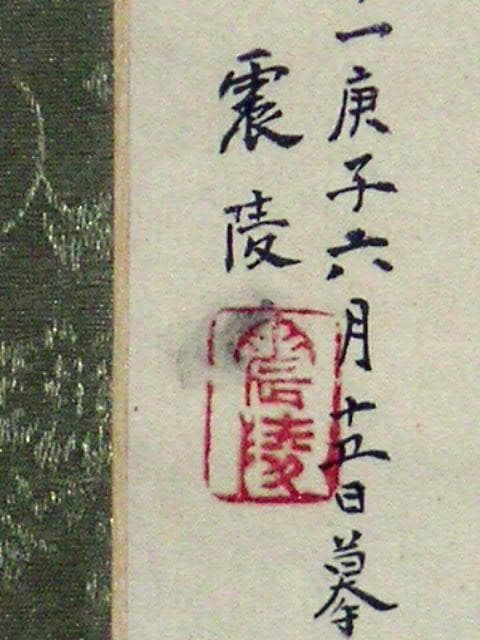 一庚子六月十五日摹
震陵
震陵